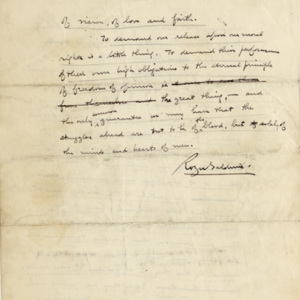 of vision, of love and faith.
To demand our release upon our moral
rights is a little thing. To demand their performance
of their own high obligations to the eternal principle
of freedom of
the great thing, – and
the only guarantee we may have that the
struggles ahead are not to be of the blood, but solely of
the minds and hearts of men.
Roger Baldwin.